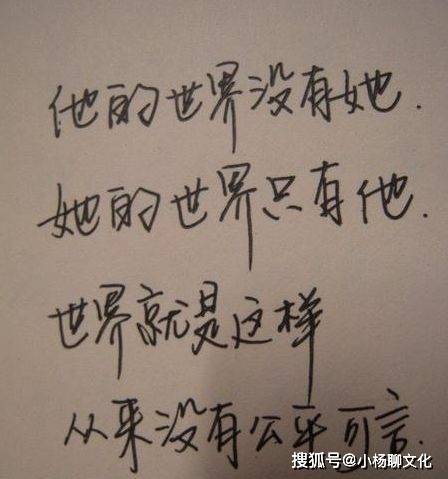 他的世界没有她.
她的世界只有他.
世界就是这样
从来没有公平可言.
搜狐号@小杨聊文化